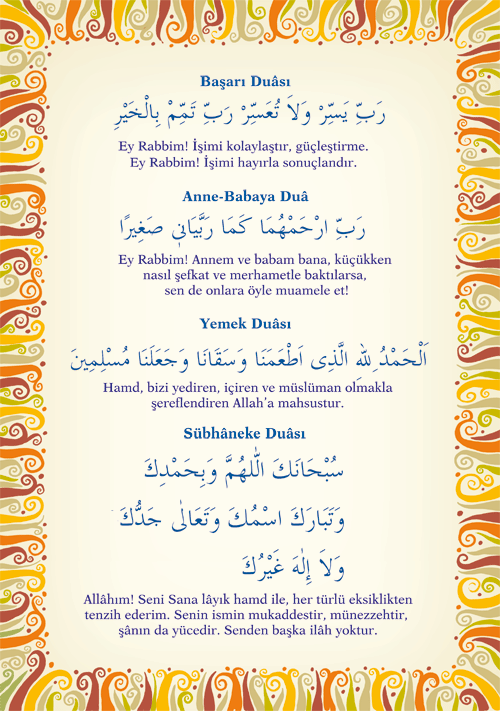 Başarı Duâsı
رَبِّ يَسِّرْ وَلاَ تُعَسِّرْ رَبِّ تَمِّمْ بِالْخَيْرِ
Ey Rabbim! İşimi kolaylaştır, güçleştirme.
Ey Rabbim! İşimi hayırla sonuçlandır.
Anne-Babaya Duâ
رَبِّ ارْحَمْهُمَا كَمَا رَبَّيَانٖى صَغِيرًا
Ey Rabbim! Annem ve babam bana, küçükken
nasıl şefkat ve merhametle baktılarsa,
sen de onlara öyle muamele et!
Yemek Duâsı
اَلْحَمْدُ لِلّٰهِ الَّذِى اَطْعَمَنَا وَسَقَانَا وَجَعَلَنَا مُسْلِمِينَ
Hamd, bizi yediren, içiren ve müslüman olmakla
şereflendiren Allah’a mahsustur.
Sübhâneke Duâsı
سُبْحَانَكَ اللّٰهُمَّ وَبِحَمْدِكَ
وَتَبَارَكَ اسْمُكَ وَتَعَالٰى جَدُّكَ
وَلاَ إِلٰهَ غَيْرُكَ
Allâhım! Seni Sana lâyık hamd ile, her türlü eksiklikten
tenzih ederim. Senin ismin mukaddestir, münezzehtir,
şânın da yücedir. Senden başka ilâh yoktur.